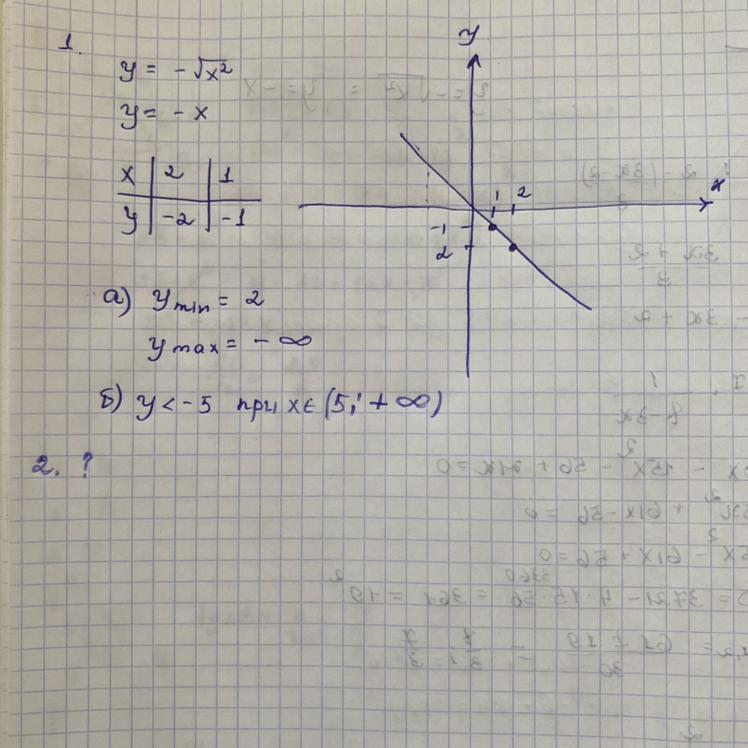 1.
y = -√x²
y = -x
x | 2 | 1
y | -2 | -1
y
x
1 2
-1
2
а) y min = 2
y max = -∞
б) y < -5 при x ∈ (5; +∞)
2. ?